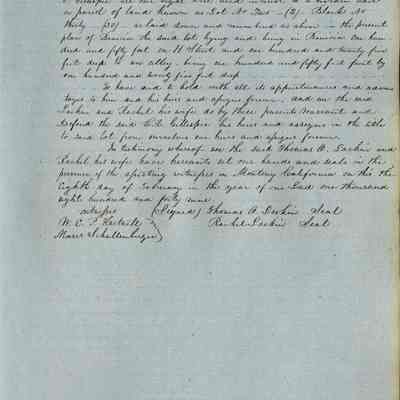 or parcel of land known as Lot No Two (2) Block No
thirty (30) as laid down and numbered as above in the present
plan of Benicia the said lot lying and being in Benicia one hun
dred and fifty feet on H Street and one hundred and twenty five
feet deep to an alley being one hundred and fifty feet front by
one hundred and twenty five feet deep
To have and to hold with all its appurtenances and advan
tages to him and his heirs and assigns forever and we the said
Larkin and Rachel his wife do by these presents Warrant and
defend the said C.V. Gillespie his heirs and assigns in the title
to said Lot from ourselves our heirs and assigns forever
In testimony whereof we the said Thomas O. Larkin and
Rachel his wife have hereunto set our hands and seals in the
presence of the attesting witnesses in Monterey California on this the
Eighth day of February in the year of our Lord one thousand
eight hundred and forty nine
witnesses (Signed) Thomas O. Larkin Seal
W. E. P. Hartnell Rachel Larkin Seal
Schallenberger